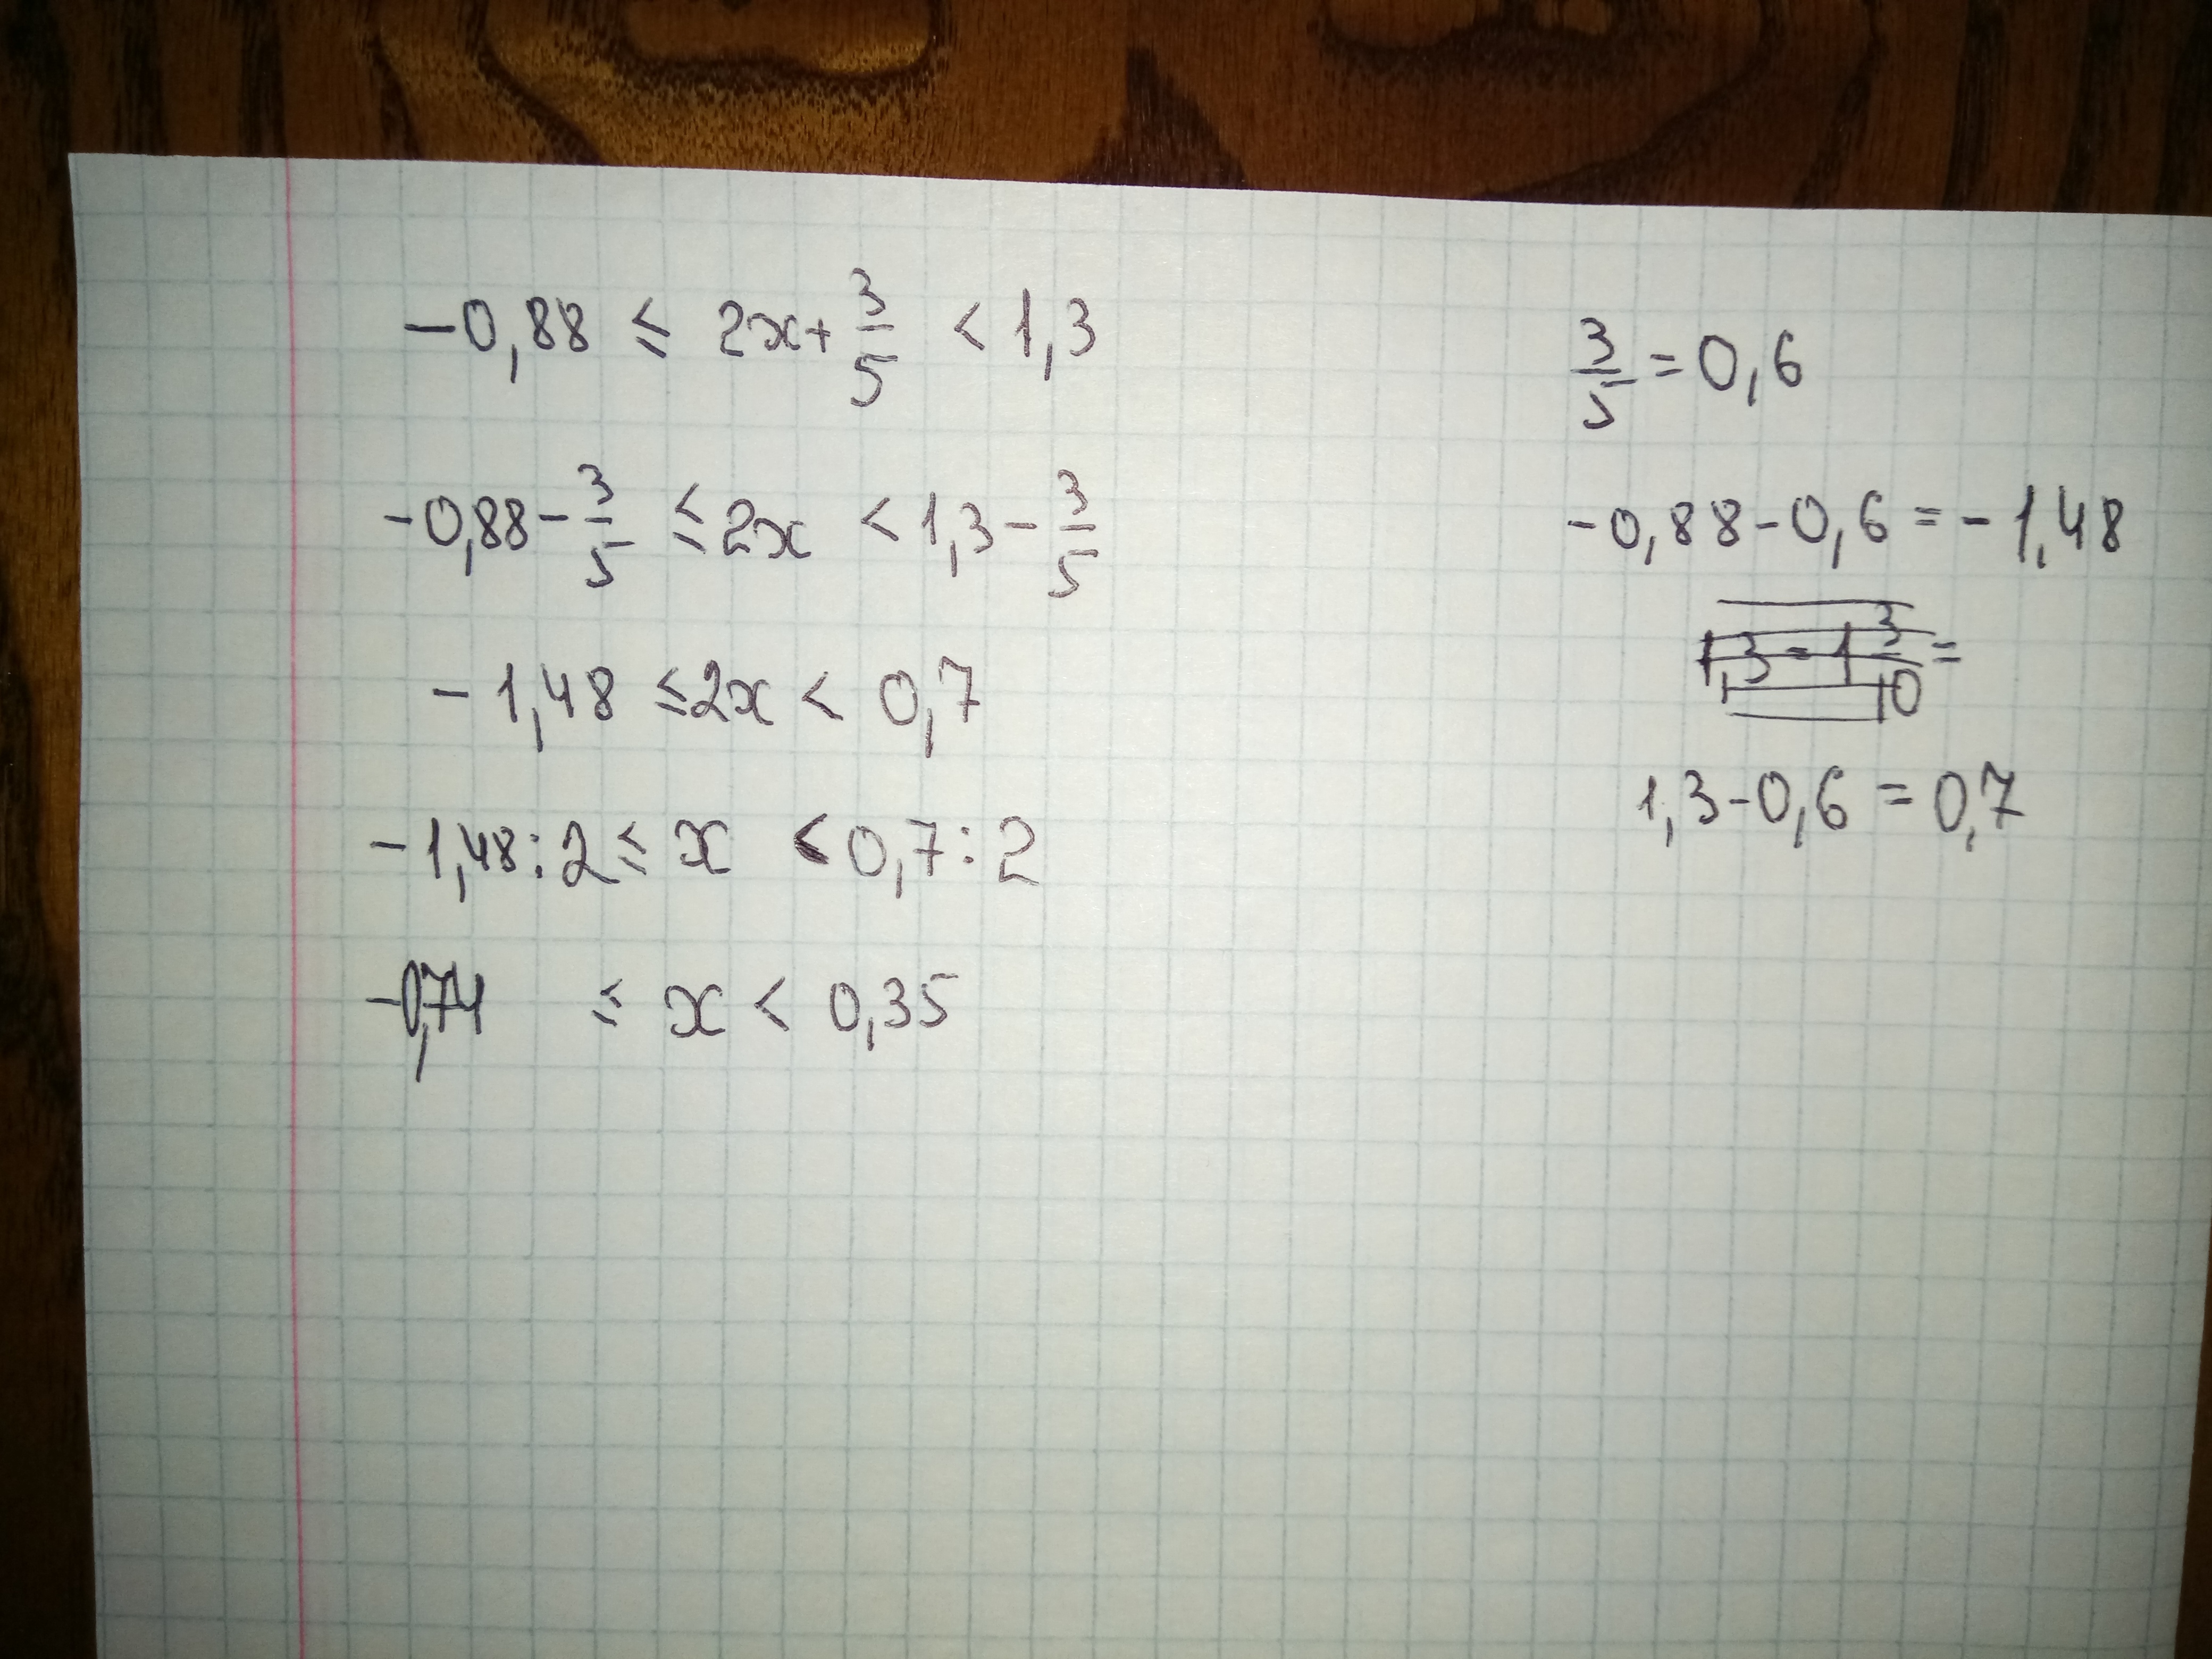 -0,88 ≤ 2x+3/5 < 1,3
-0,88-3/5 ≤ 2x < 1,3-3/5
-1,48 ≤ 2x < 0,7
-1,48:2 ≤ x < 0,7:2
-0,74 ≤ x < 0,35
3/5 = 0,6
-0,88-0,6 = -1,48
1,3 = 1 3/10 =
1,3-0,6 = 0,7